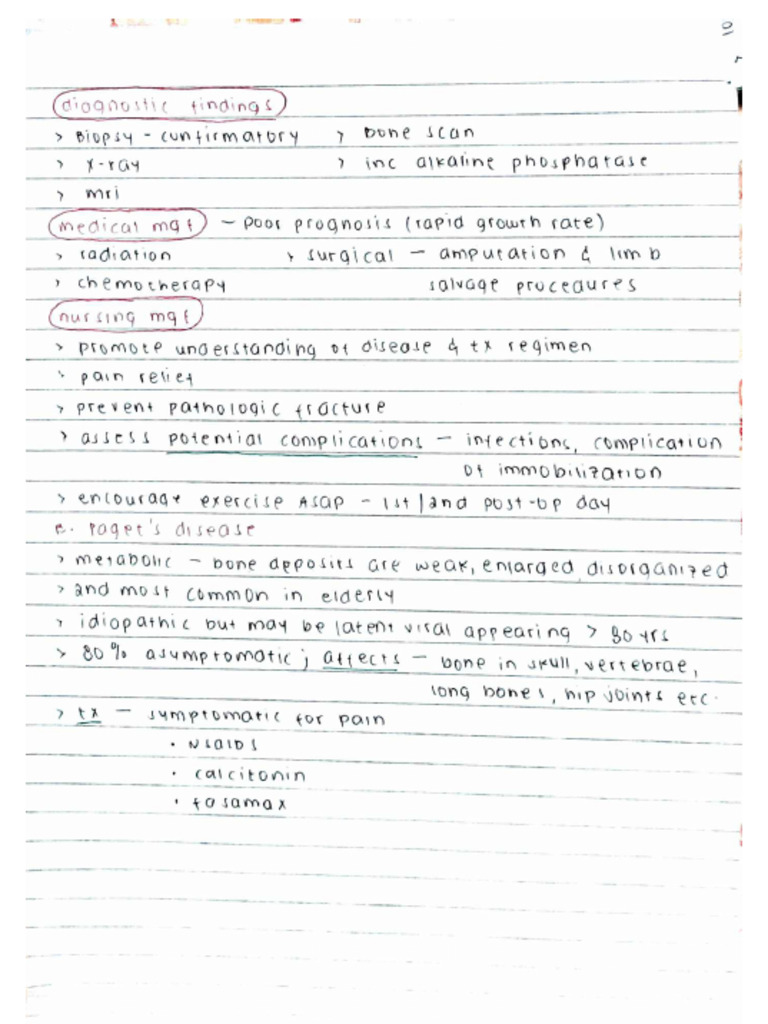 diagnostic findings
> Biopsy - confirmatory > bone scan
> x-ray > inc alkaline phosphatase
> mri
medical mgt - poor prognosis (rapid growth rate)
> radiation > surgical - amputation & limb
> chemotherapy salvage procedures
nursing mgt
> promote understanding of disease & tx regimen
> pain relief
> prevent pathologic fracture
> assess potential complications - infections, complication
of immobilization
> encourage exercise ASAP - 1st/2nd post-op day
e. Paget's disease
> metabolic - bone deposits are weak, enlarged, disorganized
> 2nd most common in elderly
> idiopathic but may be latent viral appearing > 80 yrs
> 80% asymptomatic; affects - bone in skull, vertebrae,
long bones, hip joints etc.
> tx - symptomatic for pain
• NSAIDS
• calcitonin
• fosamax